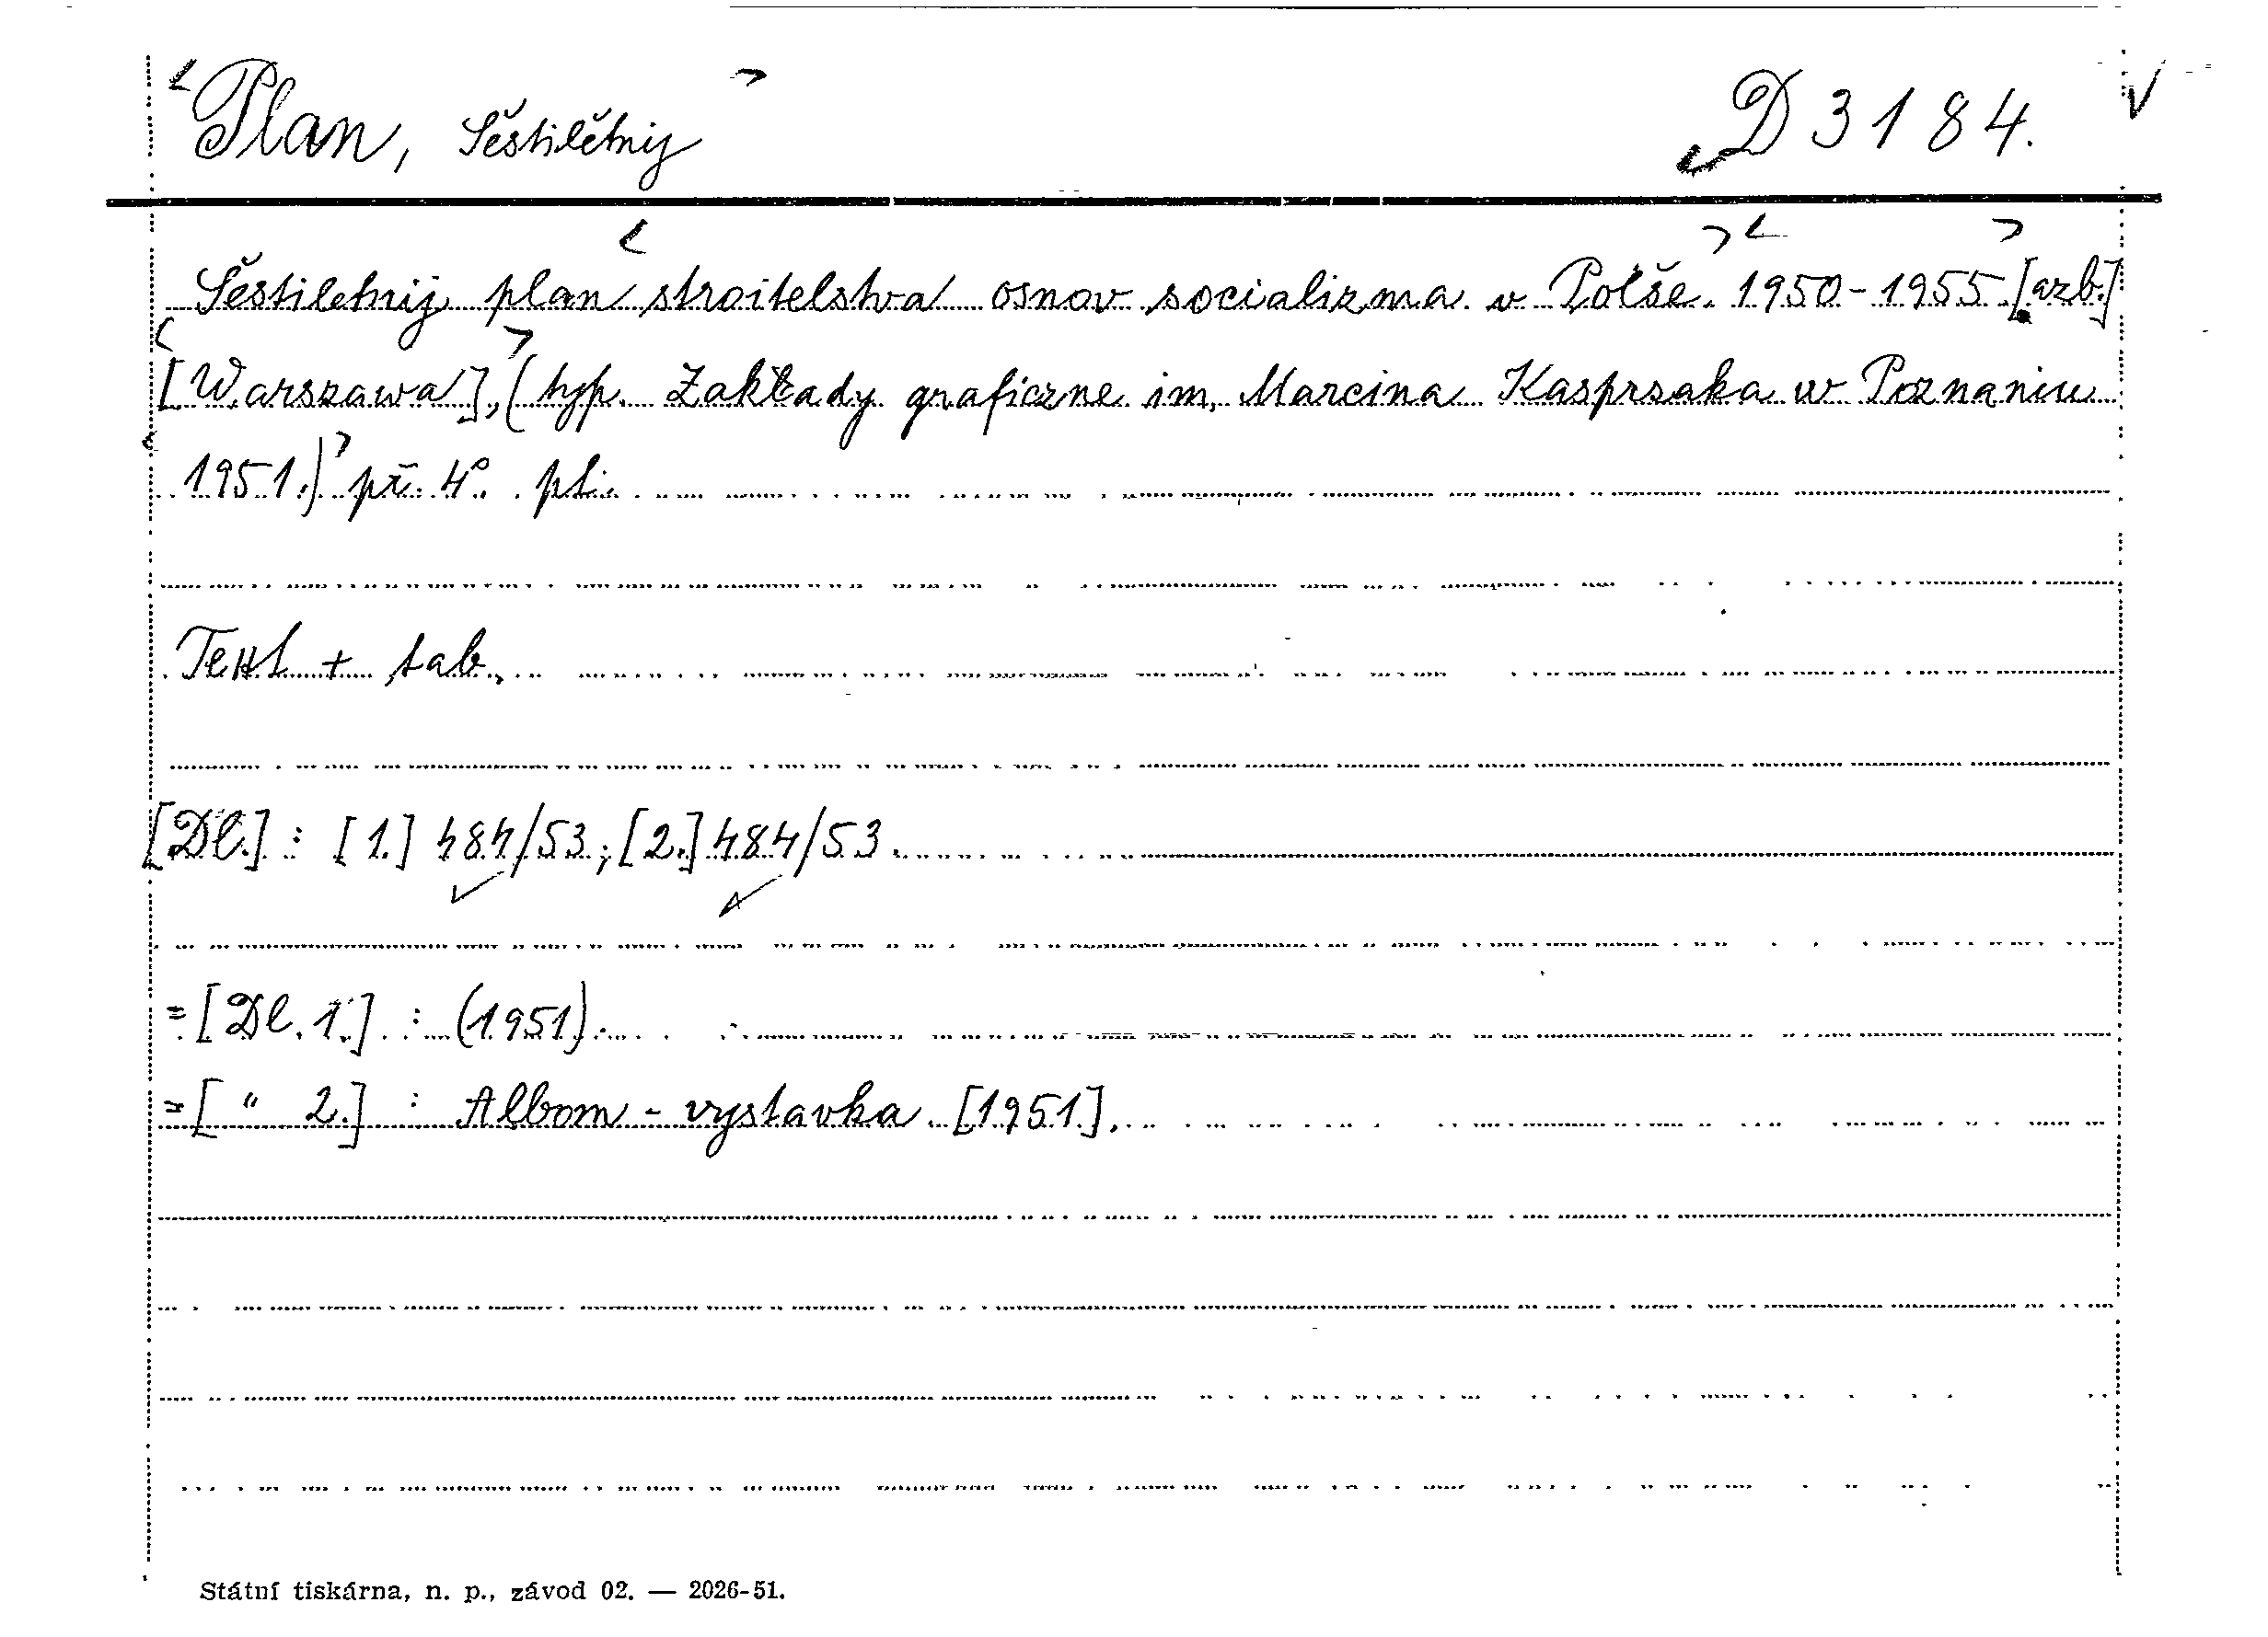 Plan, Šěstilětnij D 3184.
Šěstiletnij plan stroitelstva osnov socializma v Polše. 1950-1955 [azb.]
[Warszawa], (typ. Zakłady graficzne im. Marcina Kasprsaka w Poznaniu
1951.) př. 4°. pl.
Text + tab.
[Dl.] : [1.] 484/53; [2.] 484/53.
= [Dl. 1.] : (1951).
= [ " 2.] : Albom - vystavka [1951].
Státní tiskárna, n. p., závod 02. — 2026-51.